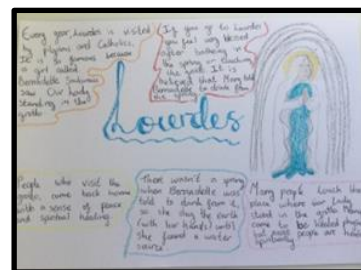 Every year, Lourdes is visited
by Pilgrims and Catholics.
It is so famous because
a girl called
Bernadette Soubirous
saw Our Lady
standing in the
grotto
If you go to Lourdes
you feel very blessed
after bathing in
the spring or touching
the grotto. It is
believed that Mary told
Bernadette to drink from
the spring
Lourdes
People who visit the
grotto, come back home
with a sense of peace
and spiritual healing.
There wasn't a spring
when Bernadette was
told to drink from it,
so she dug the earth
(with her hands) until
she found a water
source
Many people touch the
place where our Lady
stood in the grotto. Many
come to be healed physically
but most people are healed
spiritually